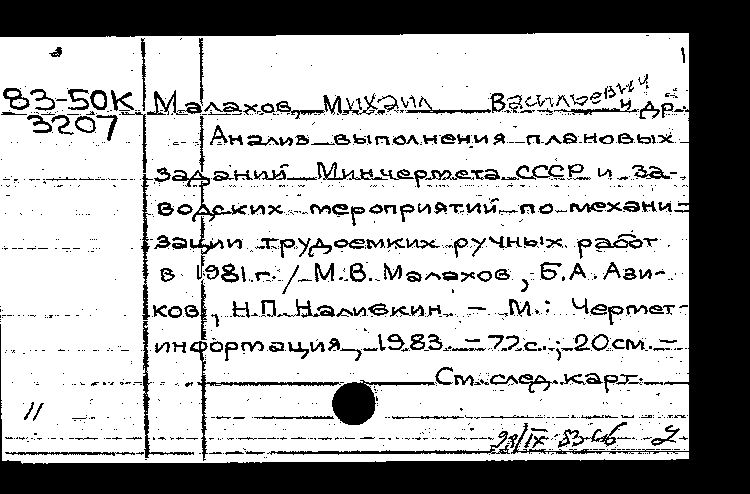 1
83-50К Малахов, Михаил Васильевич и др.
3207
Анализ выполнения плановых
заданий Минчермета СССР и за-
водских мероприятий по механи-
зации трудоемких ручных работ
в 1981 г. / М.В. Малахов, Б.А. Ази-
ков, Н.П. Наливкин. – М.: Чермет-
информация, 1983. – 77с.; 20см. –
См. след. карт.
11
23/IX 83